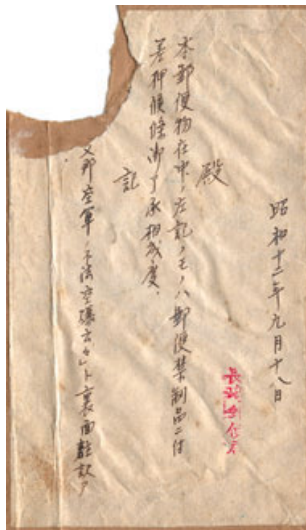 昭和十二年九月十八日
殿
本郵便物在中ノ左記ノモノハ郵便禁制品ニ付
差押候條御了承相成度、
記
支那空軍ノ不法空爆云々」ト裏面註訳ア